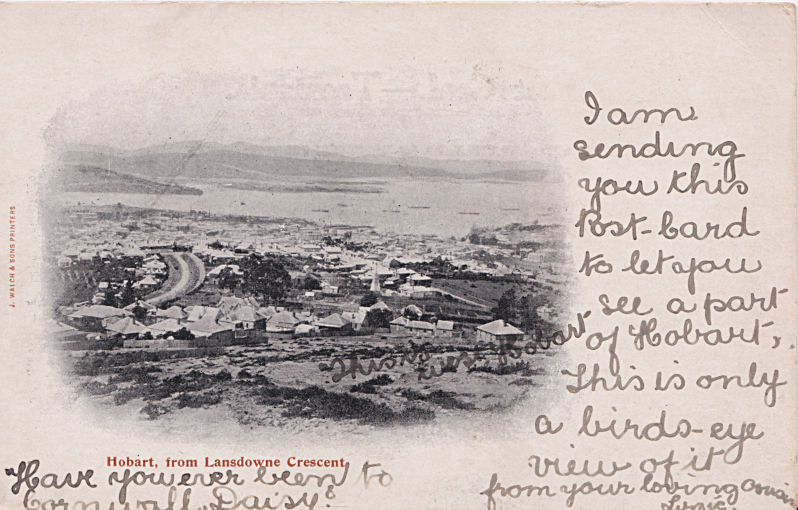 I am
sending
you this
Post-Card
to let you
see a part
of Hobart,
This is only
a birds-eye
view of it
from your loving cousin
This is
West Hobart
J. WALCH & SONS PRINTERS
Hobart, from Lansdowne Crescent
Have you ever been to
Cornwall, Daisy?